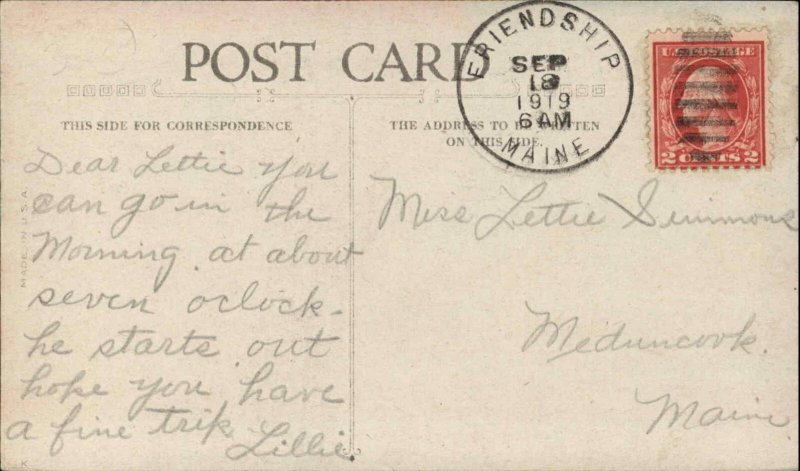 POST CARD
FRIENDSHIP
SEP
18
1919
6 AM
MAINE
U.S. POSTAGE
2 CENTS 2
THIS SIDE FOR CORRESPONDENCE
THE ADDRESS TO BE WRITTEN
ON THIS SIDE.
MADE IN U.S.A.
Dear Lettie you
can go in the
Morning at about
seven oclock-
he starts out
hope you have
a fine trik
Lillie.
Miss Lettie Simmons
Meduncook.
Maine
K